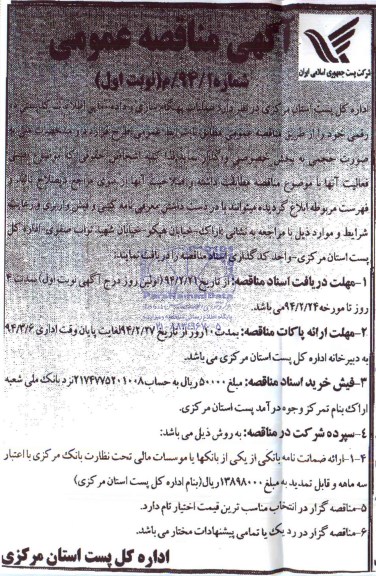 شرکت پست جمهوری اسلامی ایران
آگهی مناقصه عمومی
شماره ۹۴/۱/م(نوبت اول)
اداره کل پست استان مرکزی در نظر دارد عملیات بهنگام سازی و داده نمایی اطلاعات کدپستی ده
رقمی خود را از طریق مناقصه عمومی مطابق با شرایط عمومی طرح قرارداد و مشخصات فنی به
صورت حجمی به بخش خصوصی واگذار نماید. لذا کلیه اشخاص حقوقی که موضوع رسمی
فعالیت آنها با موضوع مناقصه مطابقت داشته و صلاحیت آنها از سوی مراجع ذیصلاح تایید و
فهرست مربوطه ابلاغ گردیده میتوانند با در دست داشتن معرفی نامه کتبی و فیش واریزی و رعایت
شرایط و موارد ذیل با مراجعه به نشانی :اراک-خیابان هپکو-خیابان شهید نواب صفوی-اداره کل
پست استان مرکزی-واحد کدگذاری اسناد مناقصه را دریافت نمایند:
۱-مهلت دریافت اسناد مناقصه: از تاریخ ۹۴/۲/۲۱ (اولین روز درج آگهی نوبت اول) بمدت ۴
روز تا مورخه ۹۴/۲/۲۴ می باشد.
۲-مهلت ارائه پاکات مناقصه: بمدت ۱۰ روز از تاریخ ۹۴/۲/۲۷ لغایت پایان وقت اداری ۹۴/۳/۶
به دبیرخانه اداره کل پست استان مرکزی می باشد.
۳-فیش خرید اسناد مناقصه: مبلغ ۵۰۰۰۰۰ ریال به حساب ۲۱۷۴۷۷۵۲۰۱۰۰۸ نزد بانک ملی شعبه
اراک بنام تمرکز وجوه درآمد پست استان مرکزی.
۴-سپرده شرکت در مناقصه: به روش ذیل می باشد:
۴-۱-ارائه ضمانت نامه بانکی از یکی از بانکها یا موسسات مالی تحت نظارت بانک مرکزی با اعتبار
سه ماهه و قابل تمدید به مبلغ ۱۳۸۹۸۰۰۰ ریال(بنام اداره کل پست استان مرکزی)
۵-مناقصه گزار در انتخاب مناسب ترین قیمت اختیار تام دارد.
۶-مناقصه گزار در رد یک یا تمامی پیشنهادات مختار می باشد.
اداره کل پست استان مرکزی